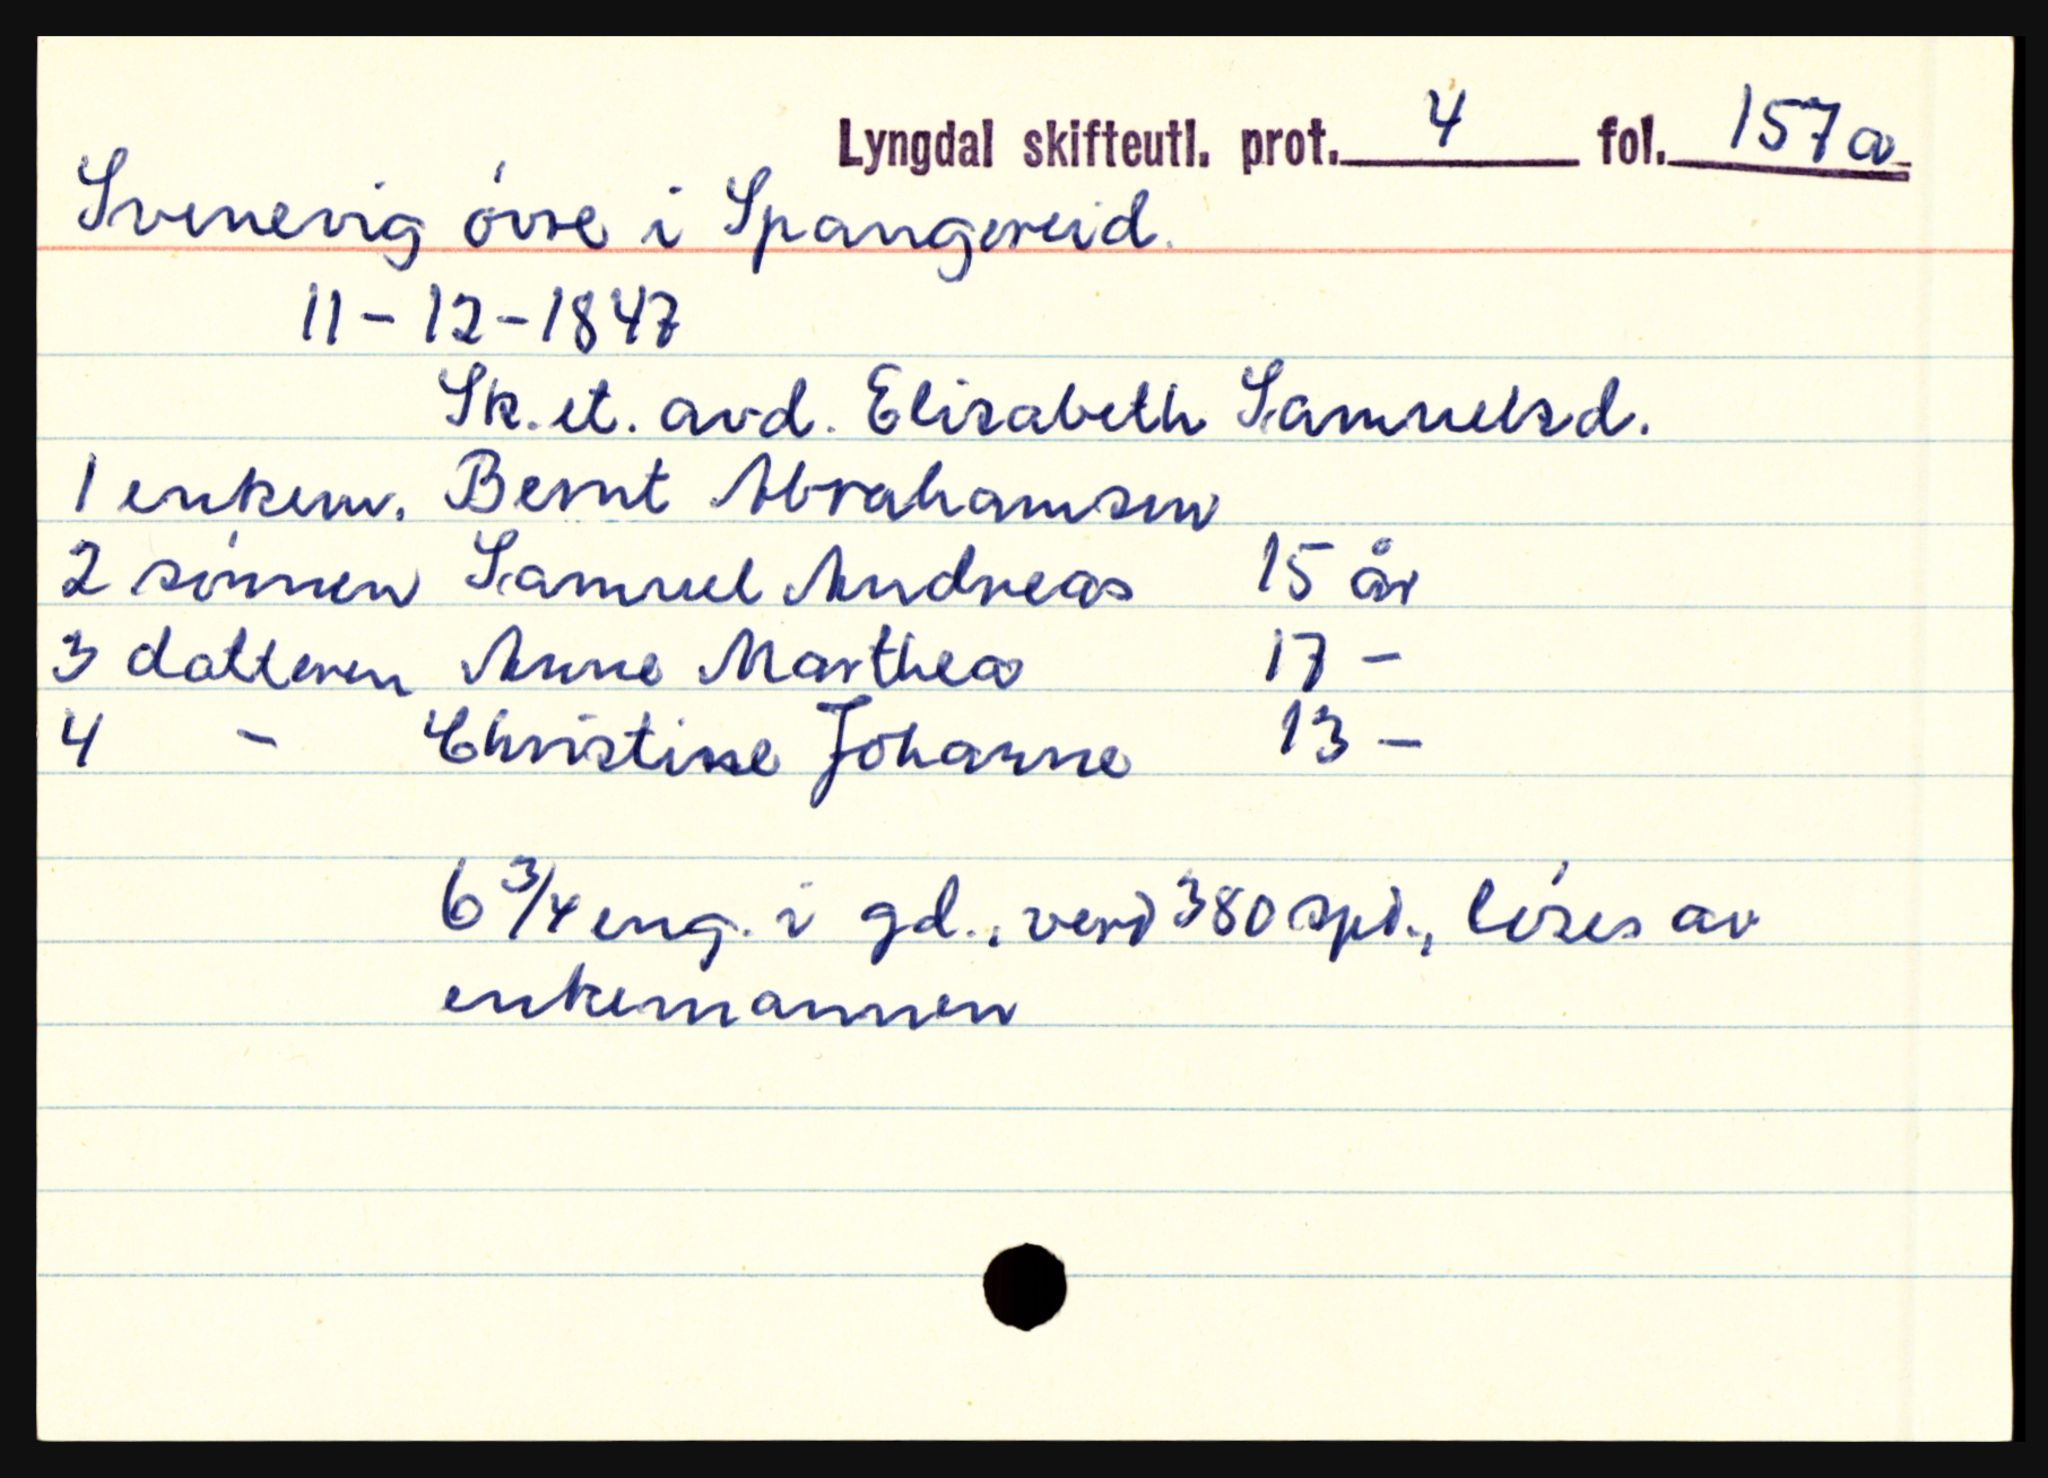 Lyngdal skifteutl. prot. 4 fol. 157a
Svenevig óvre i Spangereid.
11-12-1847
Sk. et. avd. Elisabeth Samuelsd.
1 enkem. Bernt Abrahamsen
2 sónnen Samuel Andreas 15 år
3 datteren Anne Marthea 17 -
4 - Christine Johanne 13 -
6 3/4 eng. i gd., verd 380 spd., lóses av
enkemannen